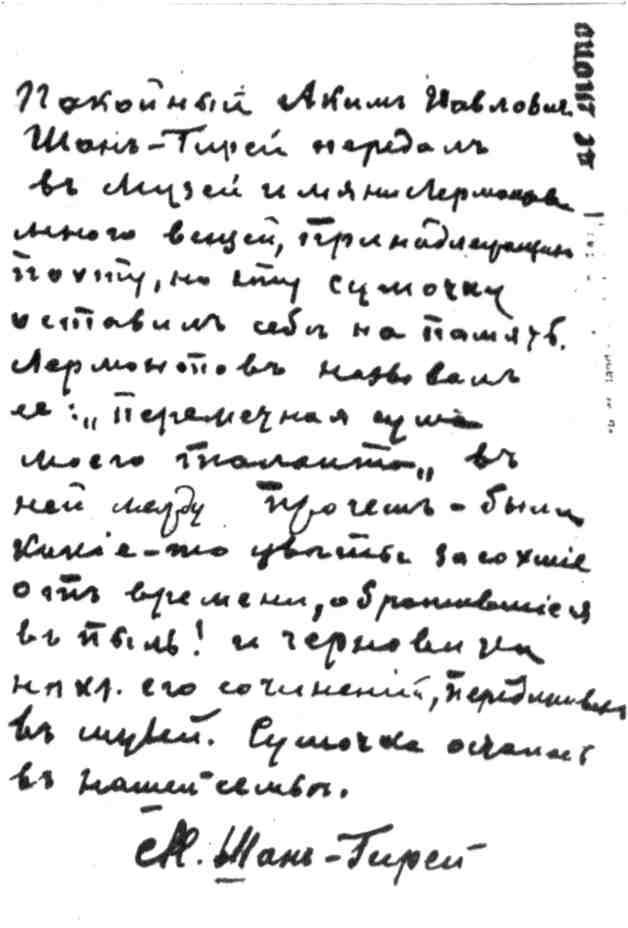 Покойный Акимъ Павлович
Шанъ-Гирей передалъ
въ Музей имяни Лермонтова
много вещей, принадлежащихъ
поэту, но эту сумочку
оставилъ себѣ на память.
Лермонтовъ называлъ
ее: „переметная сума
моего таланта„ въ
ней между прочемъ - были
какіе-то цвѣты засохшіе
отъ времени, обратившіеся
въ пыль! и черновики
нѣк. его сочиненій,
въ музей. Сумочка осталась
въ нашей семьѣ.
М. Шанъ-Гирей